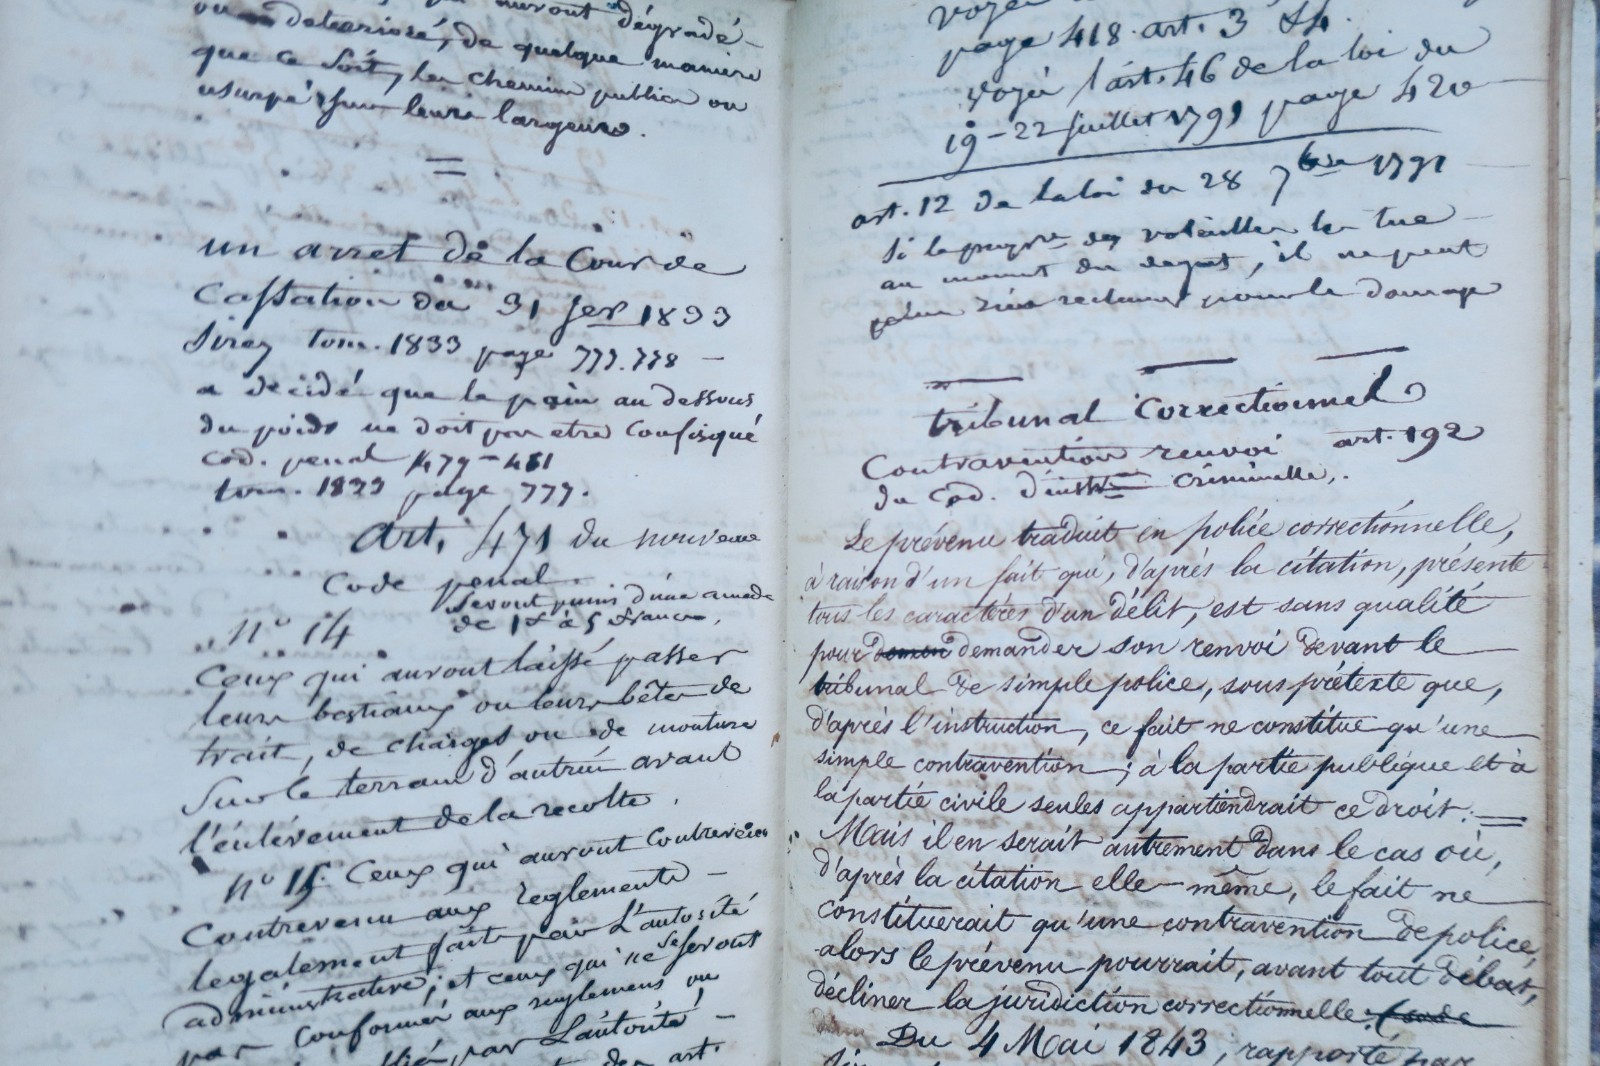 auront dégradé
ou detérioré, de quelque maniere
que ce soit, les chemins publics ou
usurpé sur leurs largeurs.
un arret de la Cour de
Cassation du 31 Jer 1833
Sirey tom. 1833 page 777.778
a décidé que le pain au dessous
du poids ne doit pas etre Confisqué
Cod. penal 479-481
tom. 1833 page 777.
art. 471 du nouveau
Code penal.
Seront punis d'une amende
N° 14 de 1f à 5 francs.
Ceux qui auront laissé passer
leurs bestiaux ou leurs bêtes de
trait, de charges ou de monture
Sur le terrain d'autrui avant
l'enlévement de la recolte.
N° 15. Ceux qui auront Contrevien
Contrevenu aux reglements
legalement fait par L'autorité
administrative; et ceux qui ne se seront
par Conformé aux reglemens ou
par L'autorité
art.
voyez
page 418. art. 3 &4.
voyez l'art. 46 de la loi du
19-22 juillet 1791 page 420
art. 12 de la loi du 28 7bre 1791
Si le propre des volailles les tue
au moment du degat, il ne peut
rien reclamer pour le domage
tribunal Correctionnel
Contravention renvoi art. 192
du Cod. d'inst Criminelle,.
Le prévenu traduit en police correctionnelle,
à raison d'un fait qui, d'après la citation, présente
tous les caractères d'un délit, est sans qualité
pour demander son renvoi devant le
tribunal de simple police, sous prétexte que,
d'après l'instruction, ce fait ne constitue qu'une
simple contravention; à la partie publique et à
la partie civile seules appartiendrait ce droit.
Mais il en serait autrement dans le cas où,
d'après la citation elle-même, le fait ne
constituerait qu'une contravention de police,
alors le prévenu pourrait, avant tout débat,
décliner la juridiction correctionnelle.
Du 4 Mai 1843, rapporté par